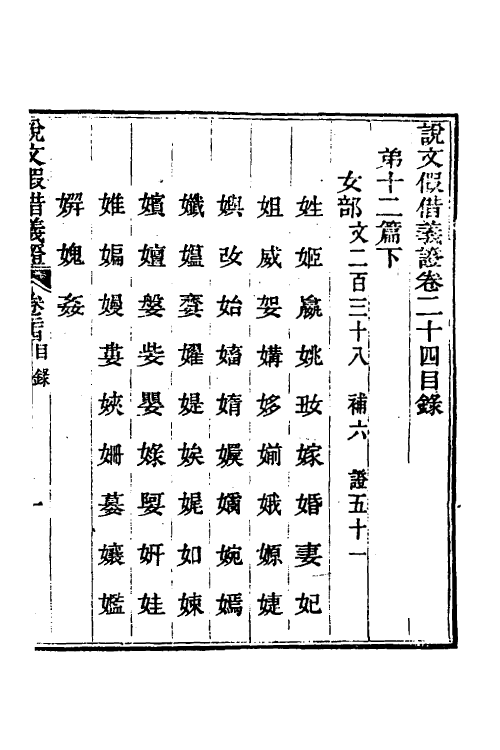 說文假借義證卷二十四目錄
弟十二篇下
女部文二百三十八 補六 證五十一
姓姬嬴姚㚢嫁婚妻妃
姐威妿媾姼媊娥嫄婕
嬩改始嬌媠嫙嫡婉嫣
孅媼㜪嬥媞娭妮如婡
嬪嬗媻姕嬰婇娿妍娃
婎媥嫚婁娹姍嫯孃嬒
姘媿姦
說文假借義證 卷二十四目錄 一